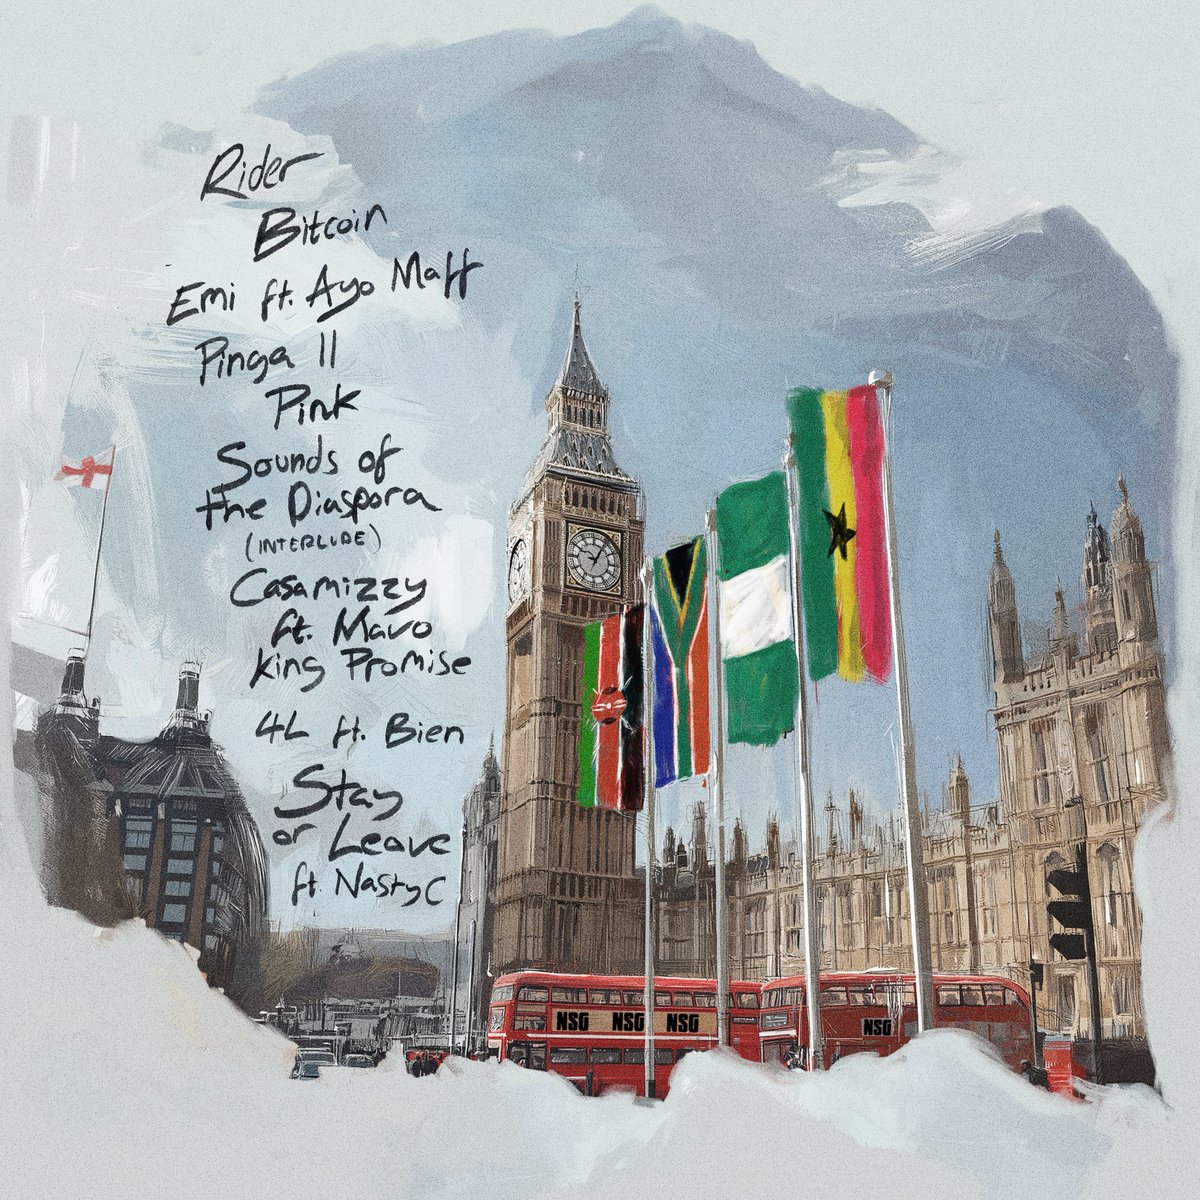 Rider
Bitcoin
Emi ft. Ayo Maff
Pinga II
Pink
Sounds of
the Diaspora
(INTERLUDE)
Casamizzy
ft. Mavo
King Promise
4L ft. Bien
Stay
or Leave
ft. Nasty C
NSG NSG NSG
NSG